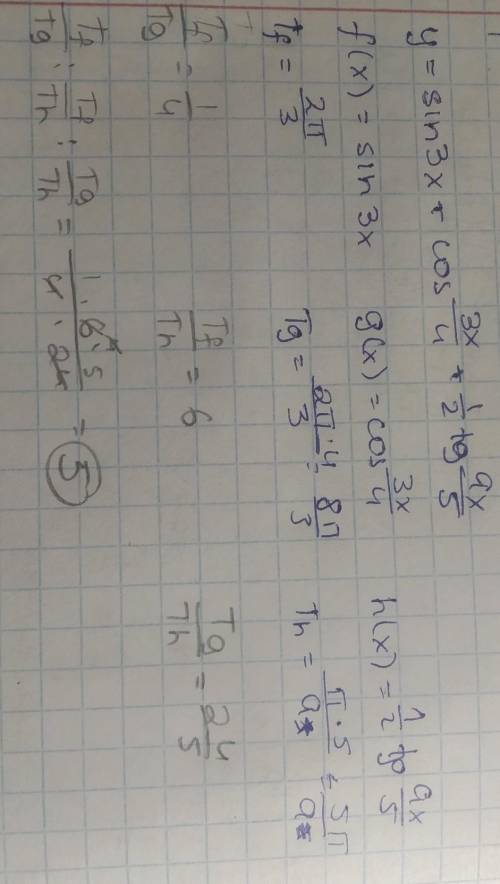 y = sin3x + cos 3x/4 + 1/2 tg 9x/5
f(x) = sin 3x g(x) = cos 3x/4 h(x) = 1/2 tg 9x/5
Tf = 2π/3 Tg = 2π·4/3 = 8π/3 Th = π·5/9 = 5π/9
Tf/Tg = 1/4 Tf/Th = 6 Tg/Th = 24/5
Tf/Tg : Tf/Th : Tg/Th = = 5